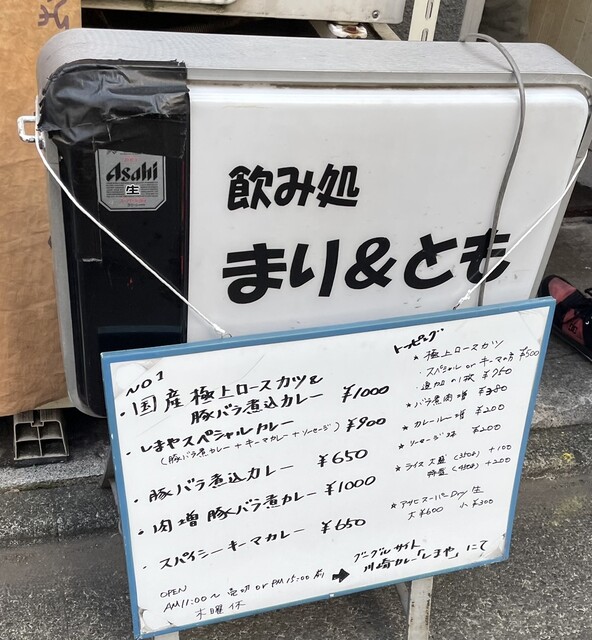 Asahi
生
飲み処
まり&とも
NO1
・国産極上ロースカツ&
豚バラ煮込カレー ¥1000
・しまやスペシャルカレー ¥900
(豚バラ煮カレー+キーマカレー+ソーセージ)
・豚バラ煮込カレー ¥650
・肉増豚バラ煮カレー ¥1000
・スパイシーキーマカレー ¥650
OPEN
AM11:00〜売切 or PM15:00前
木曜休
トッピング
★極上ロースカツ
・スペシャル or キーマの方 ¥500
・追加の1枚
★バラ煮肉増 ¥380
★カレールー増 ¥200
★ソーセージ2本 ¥200
★ライス大盛(350g) +100
特盛 +200
★アサヒスーパーDry 生
大¥600 小¥300
➡ グーグルサイト
川崎カレー「しまや」にて